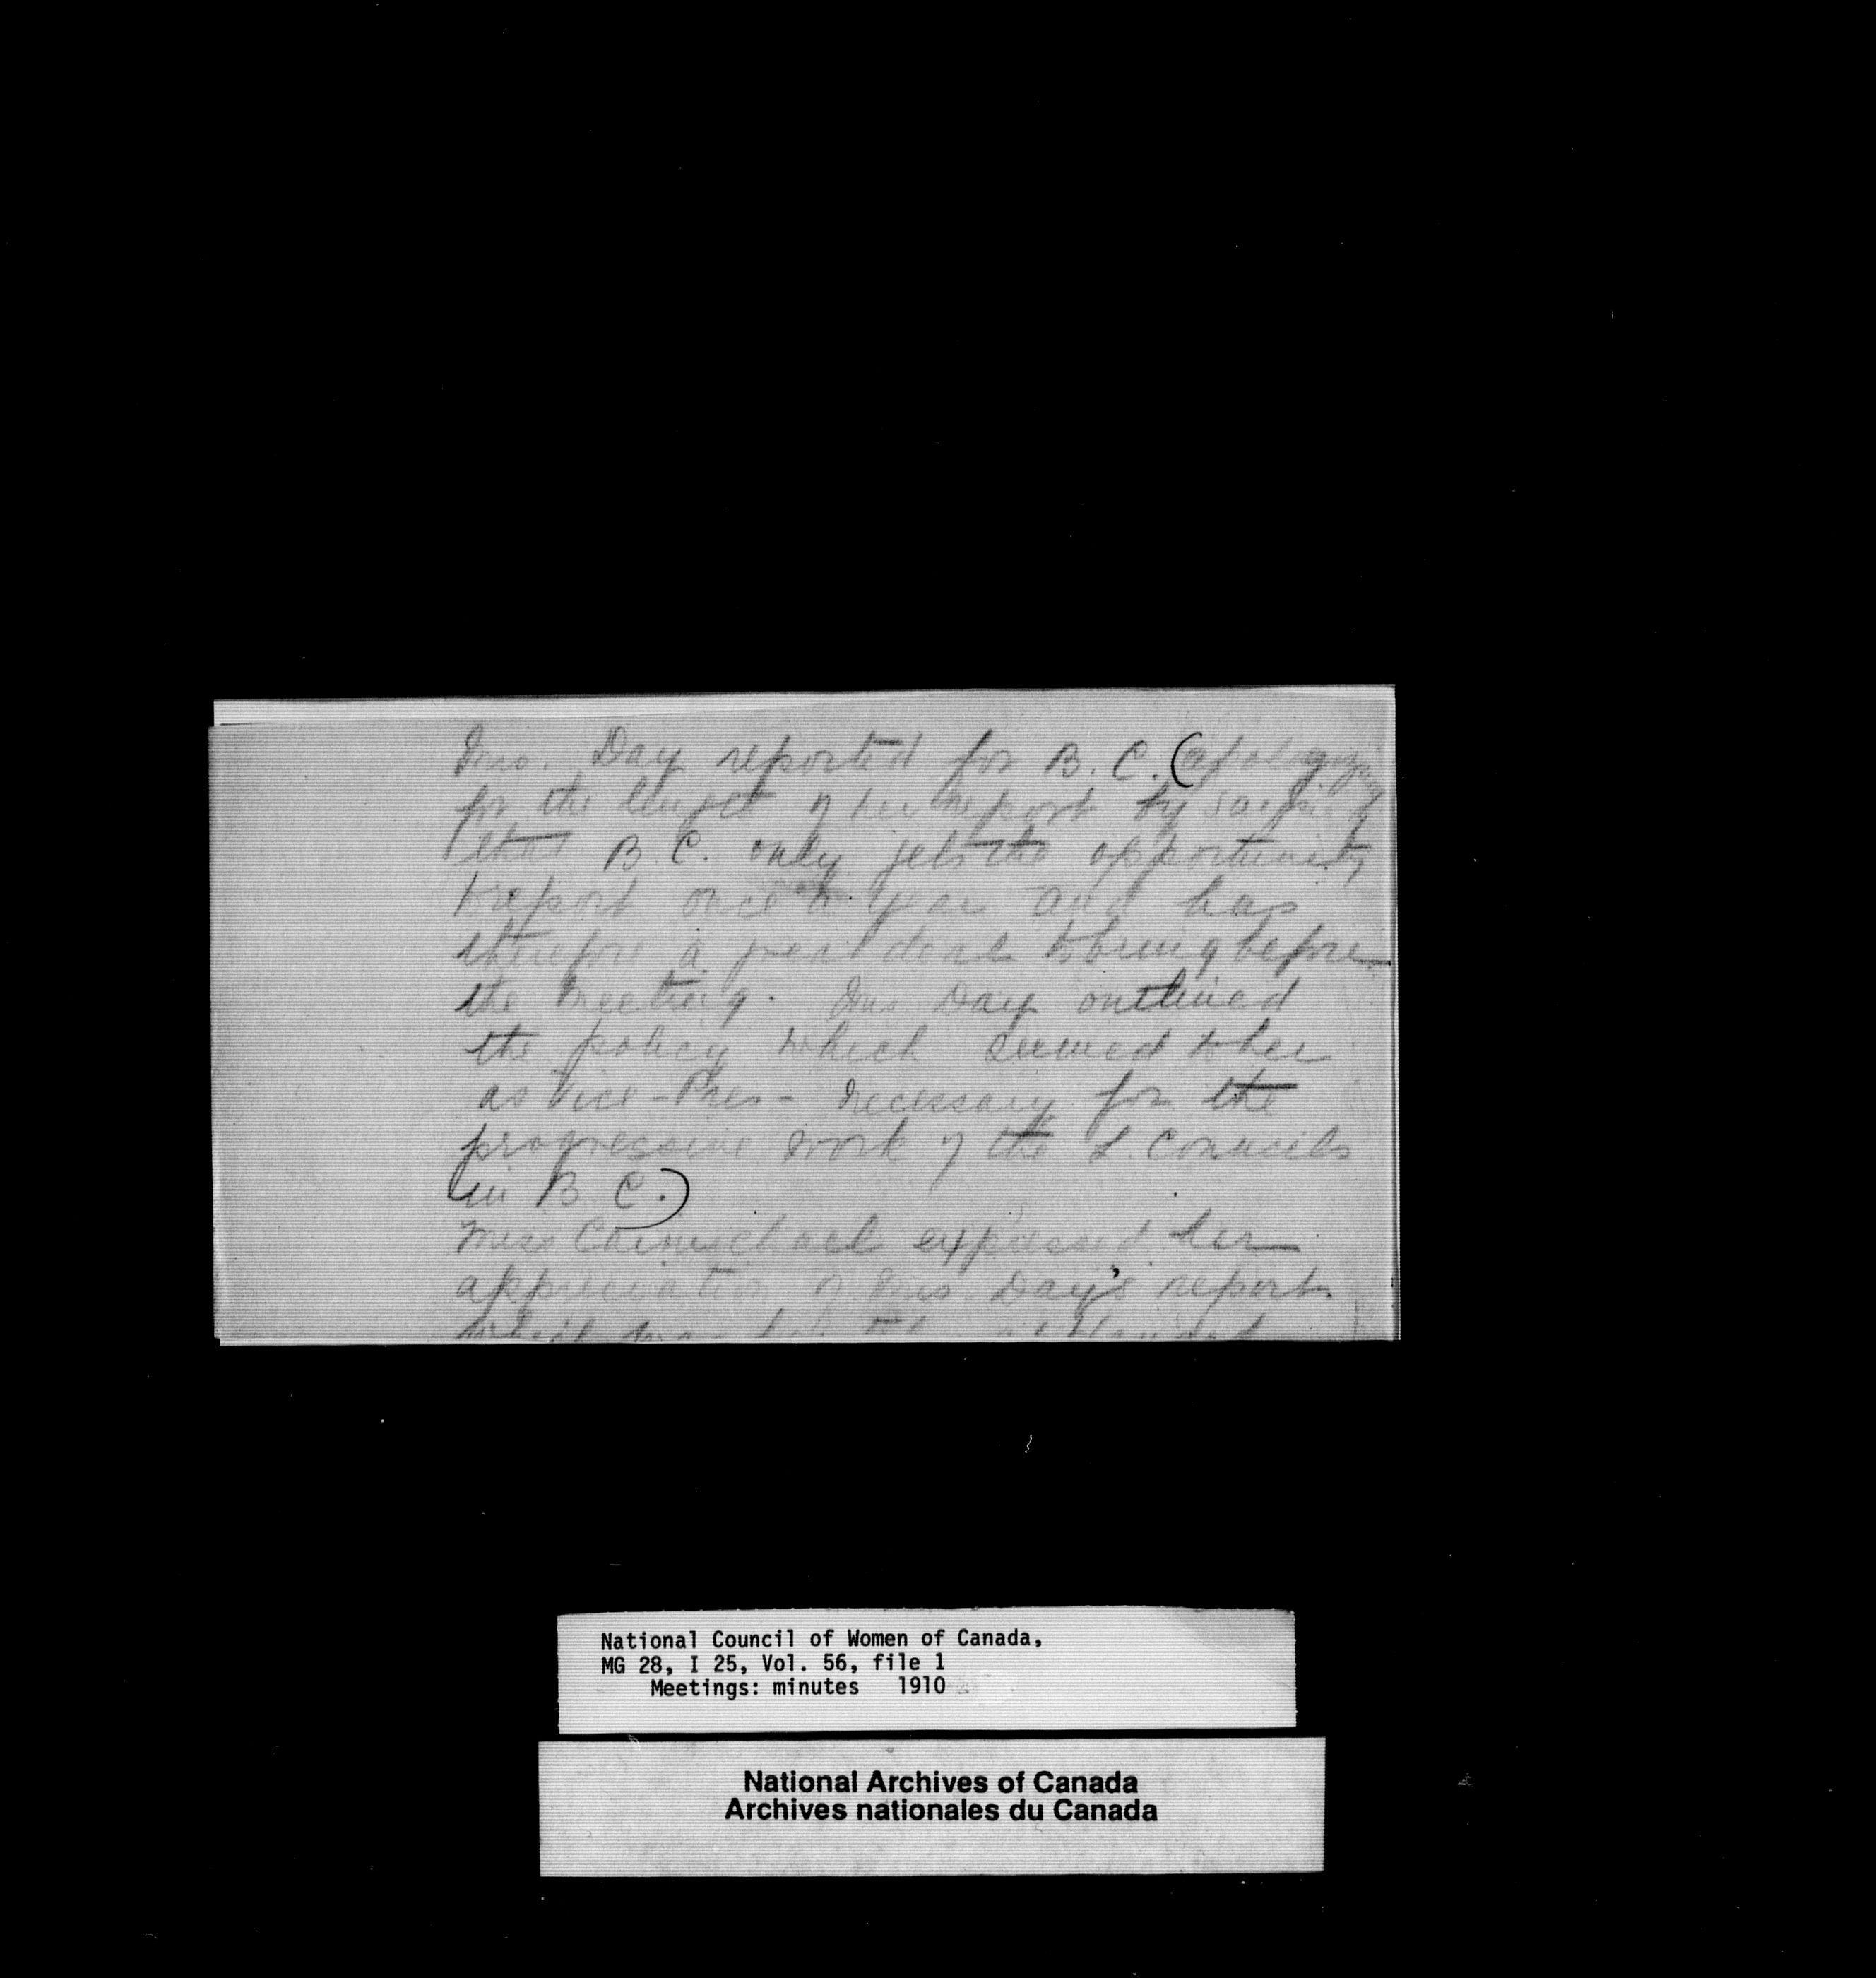 Mrs. Day reported for B. C. (apologizing
for the length of her report by saying
that B. C. only gets the opportunity
to report once a year and has
therefore a great deal to bring before
the meeting. Mrs Day outlined
the policy which seemed to her
as Vice-Pres- necessary for the
progressive work of the L. Councils
in B C.)
Miss Carmichael expressed her
appreciation of Mrs. Day's report
National Council of Women of Canada,
MG 28, I 25, Vol. 56, file 1
Meetings: minutes 1910
National Archives of Canada
Archives nationales du Canada